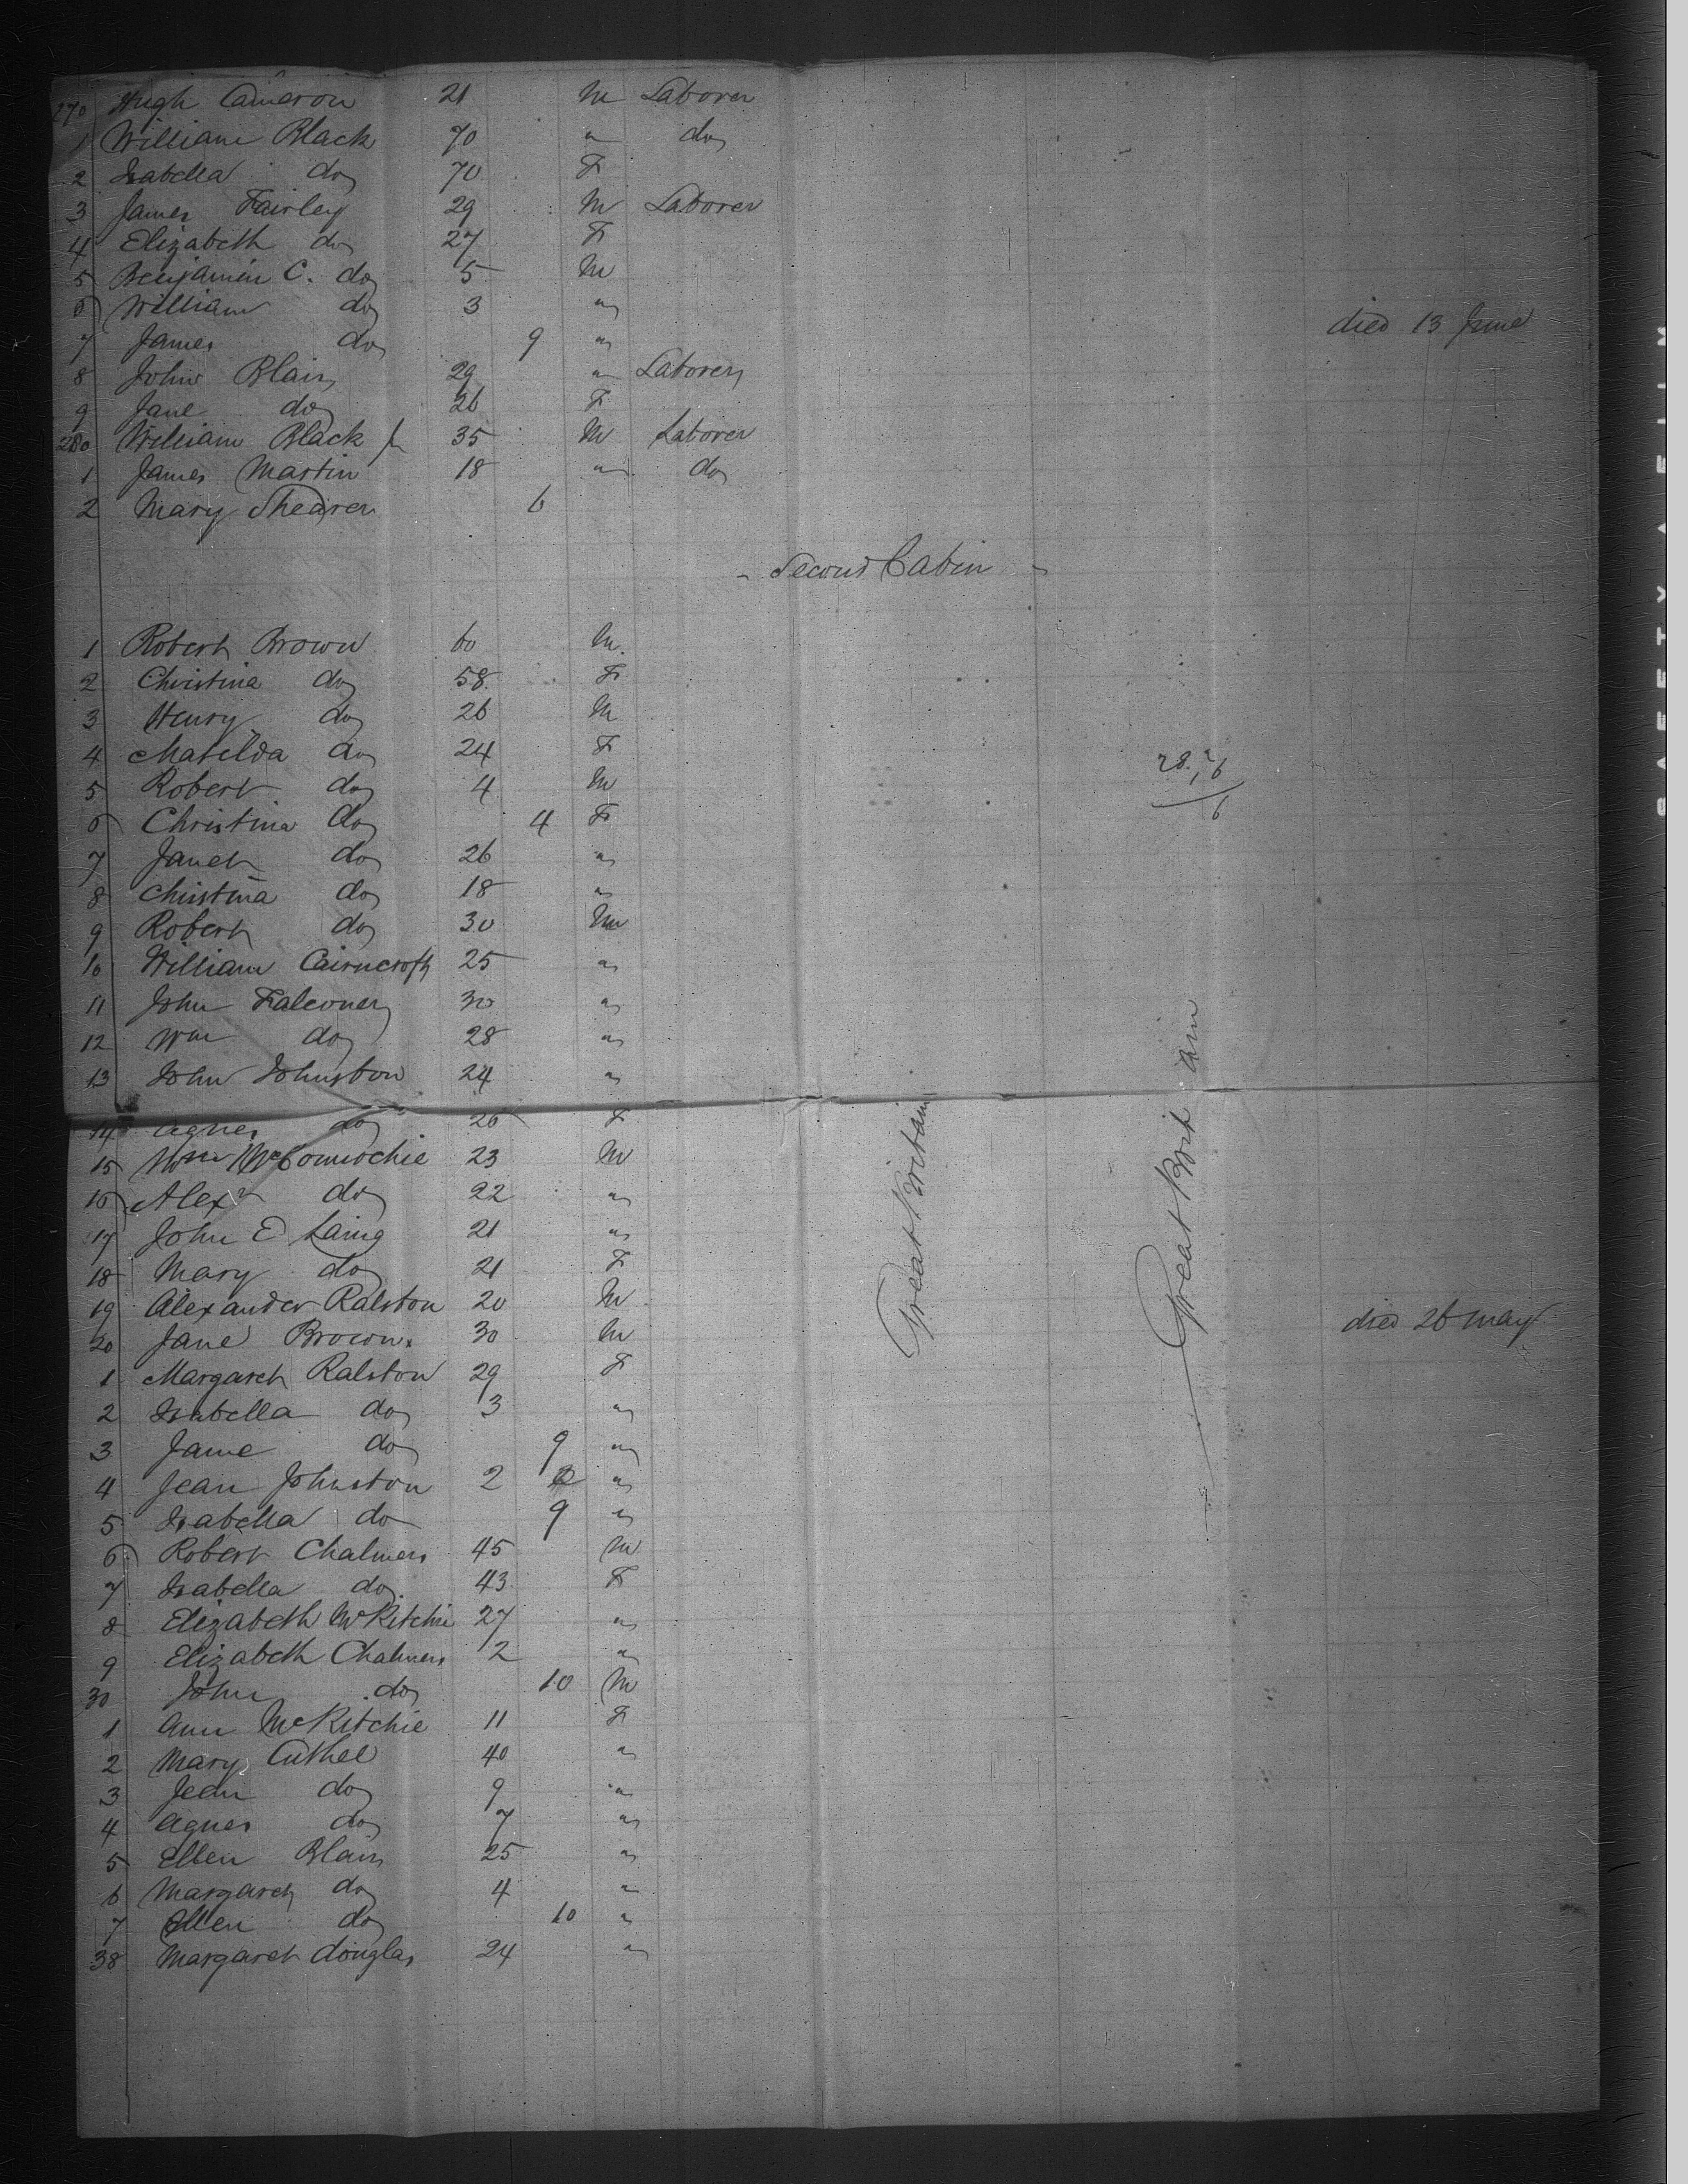 270 Hugh Cameron 21 M Laborer
1 William Black 70 " do
2 Isabella do 70 F
3 James Fairley 29 M Laborer
4 Elizabeth do 27 F
5 Benjamin C. do 5 M
6 William do 3 " died 13 June
7 James do 9 "
8 John Blair 29 " Laborer
9 Jane do 26 F
280 William Black Jr 35 M Laborer
1 James Martin 18 " do
2 Mary Shearer 6
- Second Cabin -
1 Robert Brown 60 M.
2 Christina do 58 F
3 Henry do 26 M
4 Matilda do 24 F
5 Robert do 4 M
6 Christina do 4 F
7 Janet do 26 "
8 Christina do 18 "
9 Robert do 30 M
10 William Cairncroft 25 "
11 John Falconer 30 "
12 Wm do 28 "
13 John Johnston 24 "
14 Agnes do 26 F
15 Wm McConnochie 23 M
16 Alexr do 22 "
17 John E Laing 21 "
18 Mary do 21 F
19 Alexander Ralston 20 M
20 Jane Brown. 30 M died 26 May
1 Margaret Ralston 29 F
2 Isabella do 3 "
3 Jane do 9 "
4 Jean Johnston 2 "
5 Isabella do 9 "
6 Robert Chalmers 45 M
7 Isabella do. 43 F
8 Elizabeth McRitchie 27 "
9 Elizabeth Chalmers 2 "
30 John do 10 M
1 Ann McRitchie 11 F
2 Mary Cuthel 40 "
3 Jean do 9 "
4 Agnes do 7 "
5 Ellen Blair 25 "
6 Margaret do 4 "
7 Ellen do 10 "
38 Margaret Douglas 24 "
Great Britain
Great Britain
SAFETY FILM